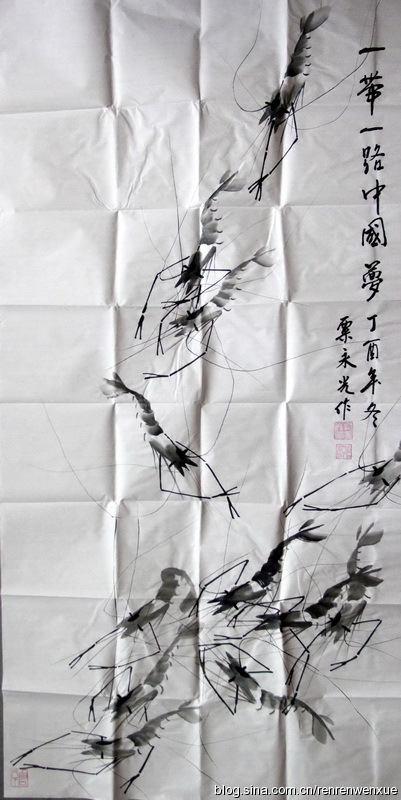 一帶一路中國夢丁酉年冬
粟永光作
blog.sina.com.cn/renrenwenxue